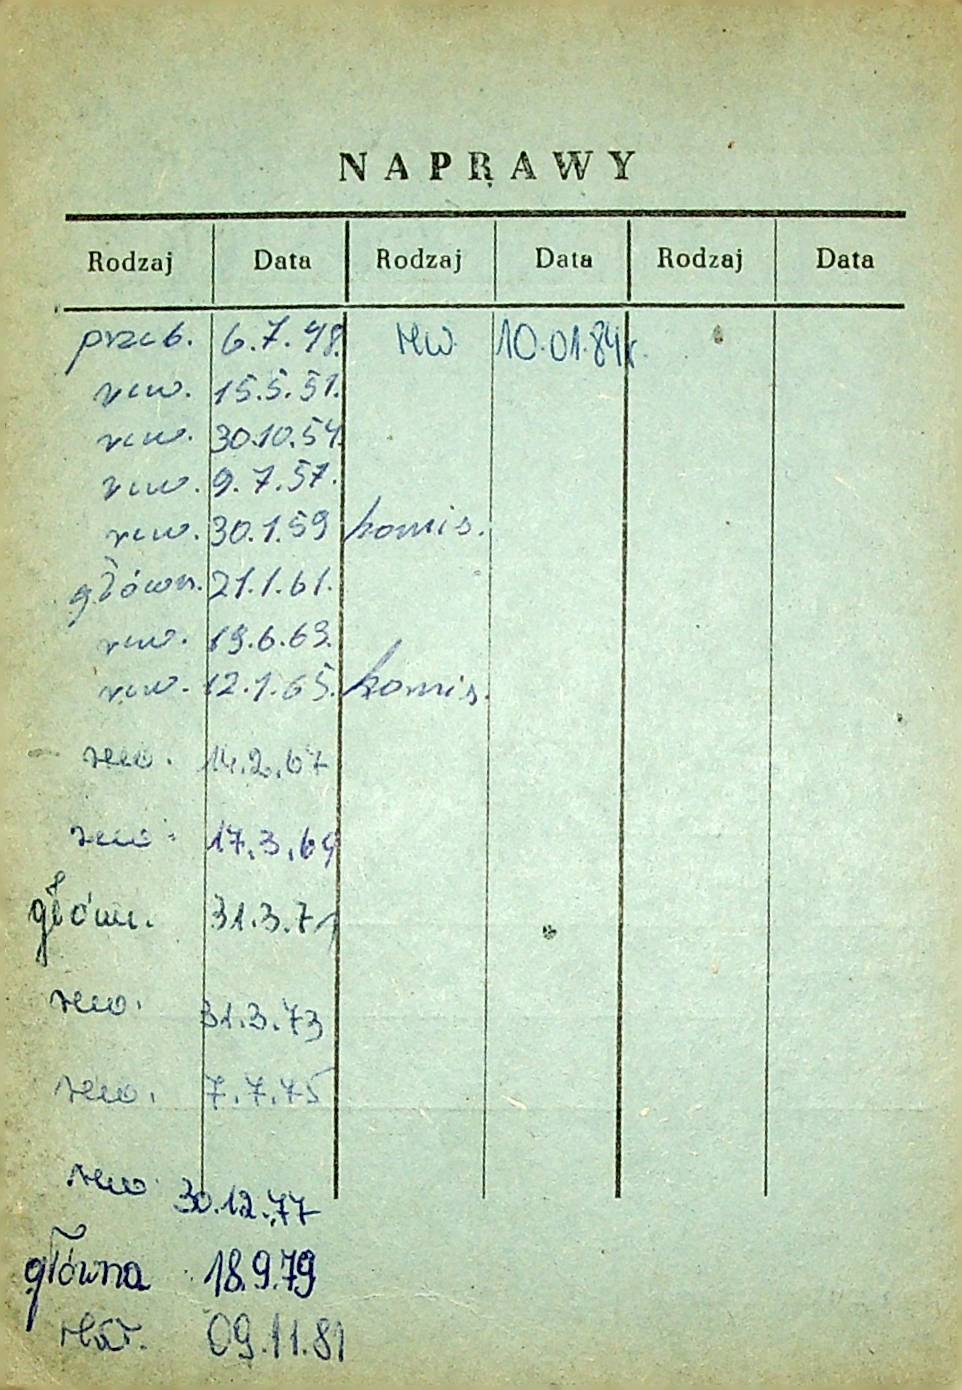 NAPRAWY
Rodzaj Data Rodzaj Data Rodzaj Data
przeb. 6.7.48. rew. 10.01.84r.
rew. 15.5.51.
rew. 30.10.54.
rew. 9.7.57.
rew. 30.1.59 komis.
główn. 21.1.61.
rew. 19.6.63.
rew. 12.1.65. komis.
rew. 14.2.67
rew. 17.3.69
główn. 31.3.71
rew. 31.3.73
rew. 7.7.75
rew. 30.12.77
główna 18.9.79
09.11.81